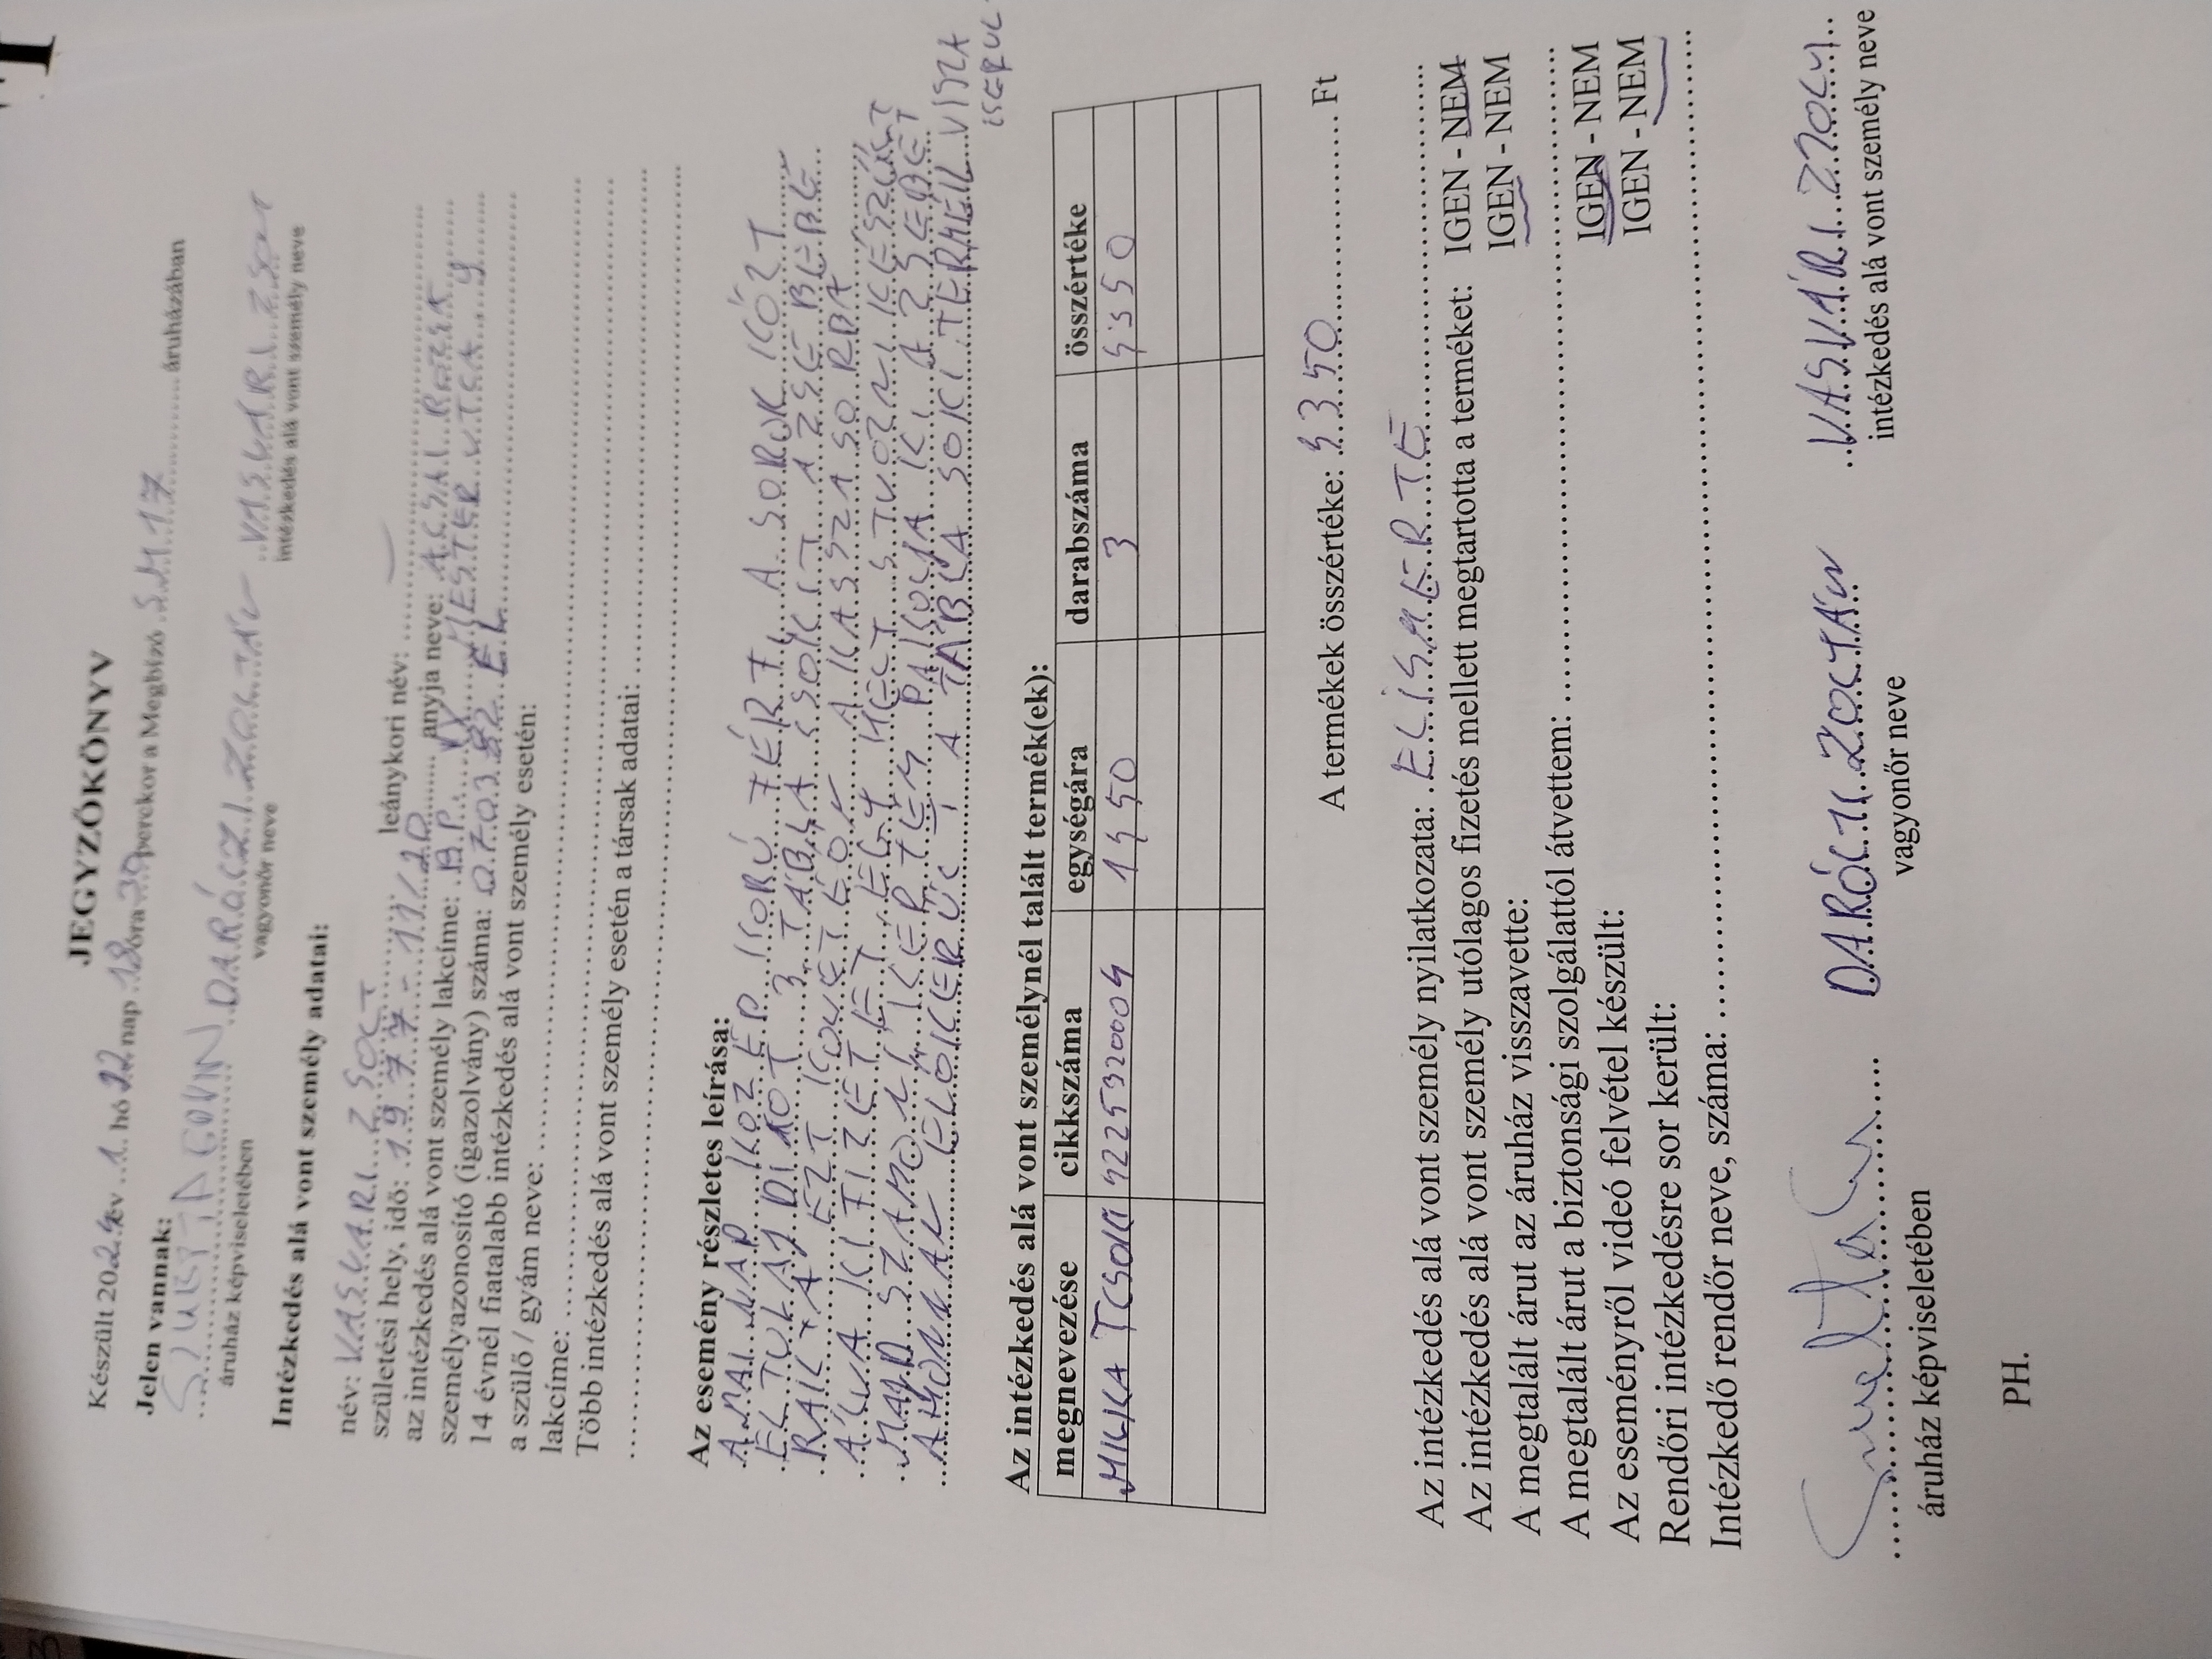 JEGYZŐKÖNYV
Készült 2024 év 1. hó 22 nap 18 óra 30 perckor a Megbízó S.M.17 áruházában
Jelen vannak:
DARÓCZI ZOLTÁN VASVÁRI ZSOLT
áruház képviseletében vagyonőr neve intézkedés alá vont személy neve
Intézkedés alá vont személy adatai:
név: VASVARI ZSOLT leánykori név: —
születési hely, idő: 1977-11/20 anyja neve:
az intézkedés alá vont személy lakcíme: BP. ESZTER UTCA 9
személyazonosító (igazolvány) száma:
14 évnél fiatalabb intézkedés alá vont személy esetén:
a szülő / gyám neve:
lakcíme:
Több intézkedés alá vont személy esetén a társak adatai:
Az esemény részletes leírása:
A MAI NAP KÖZÉP KORÚ FÉRFI A SOROK KÖZT
ELTULAJDINOT 3 TÁBLA CSOKIT A ZSEBÉBE
RAKTA EZT KÖVETŐEN A KASSZA SORBA
ÁLVA KI FIZETETT EGY HELT STUDZNI KÉSZÜLT
MAJD KÉRTEM PAKOLJA KI A ZSEBÉT
AHONNAN ELŐKERÜLT A TÁBLA SOKI TERMÉK VISZA
KERÜL
Az intézkedés alá vont személynél talált termék(ek):
megnevezése cikkszáma egységára darabszáma összértéke
MILKA TCSOKI 4225320004 1450 3 4350
A termékek összértéke: 4350 Ft
Az intézkedés alá vont személy nyilatkozata: ELISMERTE
Az intézkedés alá vont személy utólagos fizetés mellett megtartotta a terméket: IGEN - NEM
A megtalált árut az áruház visszavette: IGEN - NEM
A megtalált árut a biztonsági szolgálattól átvettem:
Az eseményről videó felvétel készült: IGEN - NEM
Rendőri intézkedésre sor került: IGEN - NEM
Intézkedő rendőr neve, száma:
DARÓCZI ZOLTÁN VASVÁRI ZSOLT
áruház képviseletében vagyonőr neve intézkedés alá vont személy neve
PH.